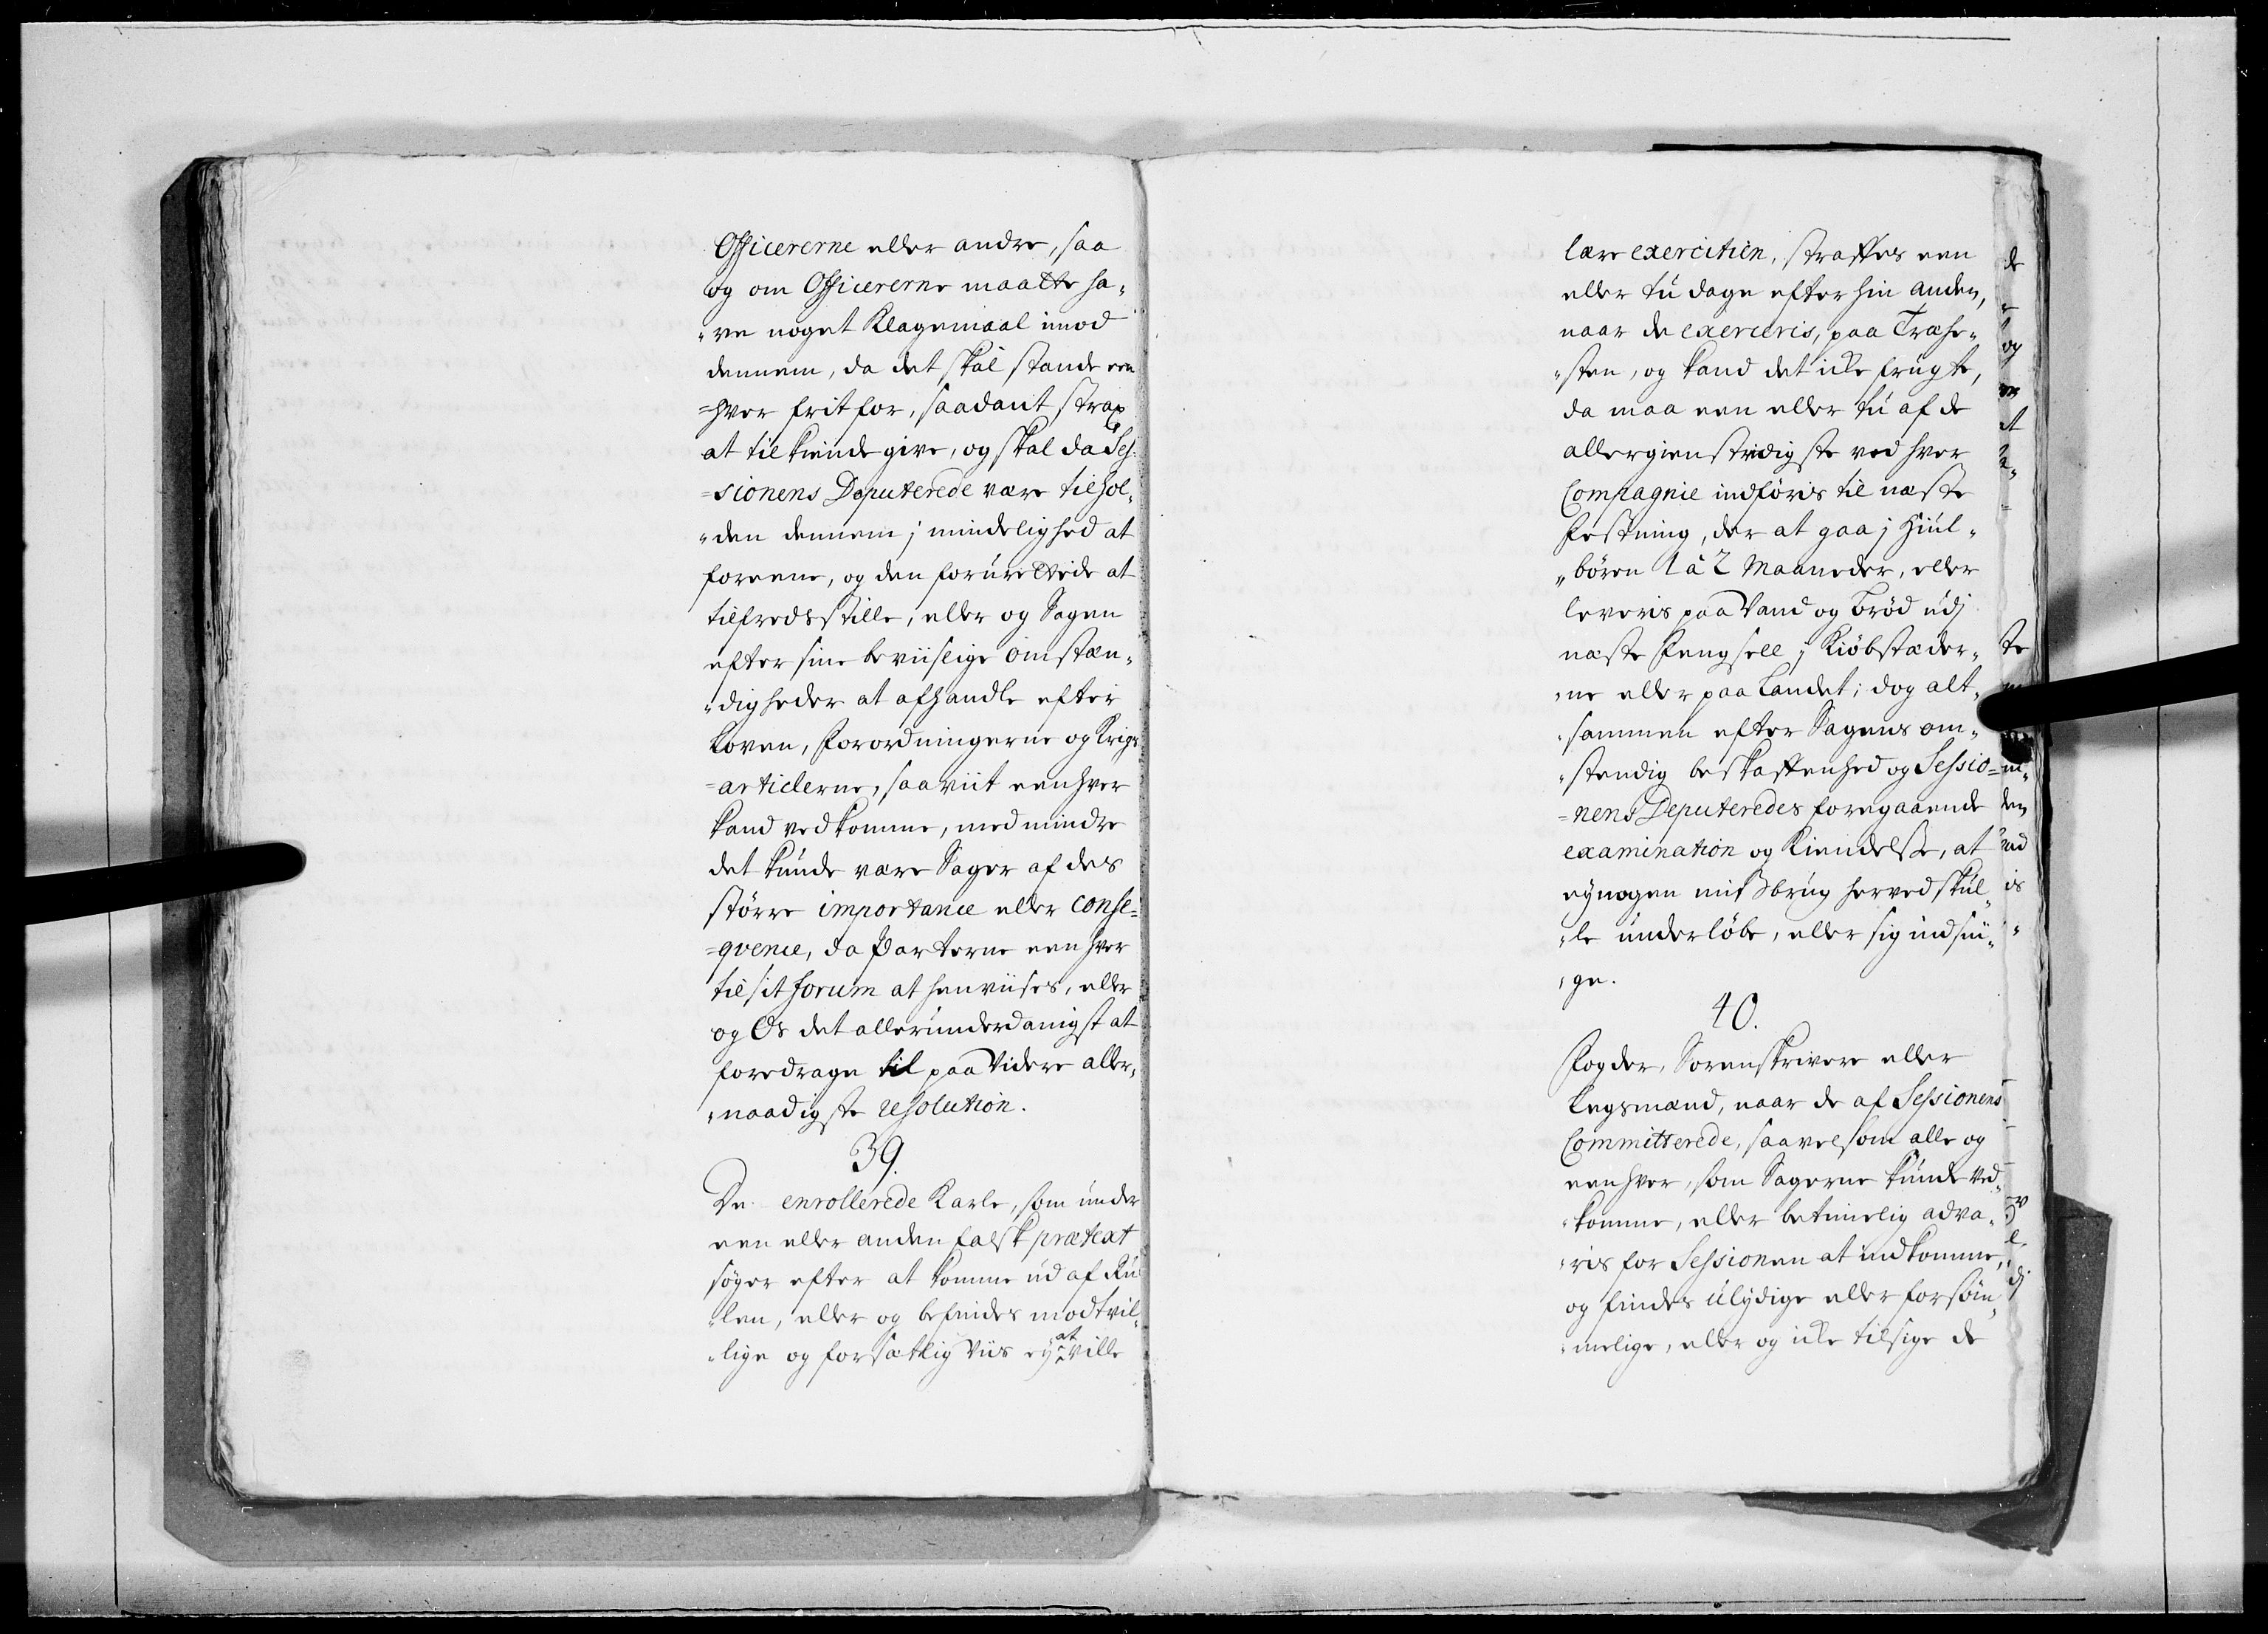 Officererne eller andre, saa
og om Officererne maatte ha„
„ve noget Klagemaal imod
dennem, da det skal stande een
=hver frit for, saadant strax
at tilkiende give, og skal da Ses=
=sionens Deputerede være tilhol„
„den dennem j mindelighed at
foreene, og den foruréttede at
tilfredsstille, eller og Sagen
efter sine beviislige omstæn„
„digheder at afhandle efter
Loven, Forordningerne og Krigs
=articlerne, saaviit eenhver
kand vedkomme, med mindre
det kunde være Sager af des
större importance eller conse=
=qvence, da Parterne een hver
til sit forum at henviises, eller
og Os det allerunderdanigst at
foredrage til paa Videre aller„
„naadigste resolution.
39.
De enrollerede Karle, som under
een eller anden falsk prætext
söger efter at komme ud af Ru
„len, eller og befindes modtvil„
„lige og forsætlig Viis ey at ville
lære exercitien, straffes een
eller tu dage efter hin anden,
naar de exerceris, paa Træhe„
„sten, og kand det icke frugte,
da maa een eller tu af de
allergienstridigste ved hver
Compagnie indföris til næste
Festning, der at gaa j Hiul„
„bören 1 à 2 Maaneder, eller
leveris paa Vand og Bröd udj
næste Fengsell j Kiöbstæder„
„ne eller paa Landet; dog alt„
„sammen efter Sagens om„
„stendig beskaffenhed og Sessio=
=nens Deputeredes foregaaende
examination og Kiendelse, at
ey nogen misbrug herved skul„
„le underlöbe, eller sig indsni„
„ge.
40.
Fogder, Sorenskrivere eller
Legsmænd, naar de af Sessionens
Committerede, saavelsom alle og
een hver, som Sagerne kunde ved„
„komme, eller betimelig adva„
„ris for Sessionen at indkomme,
og findes Ulydige eller forsöm„
„melige, eller og icke tilsige de